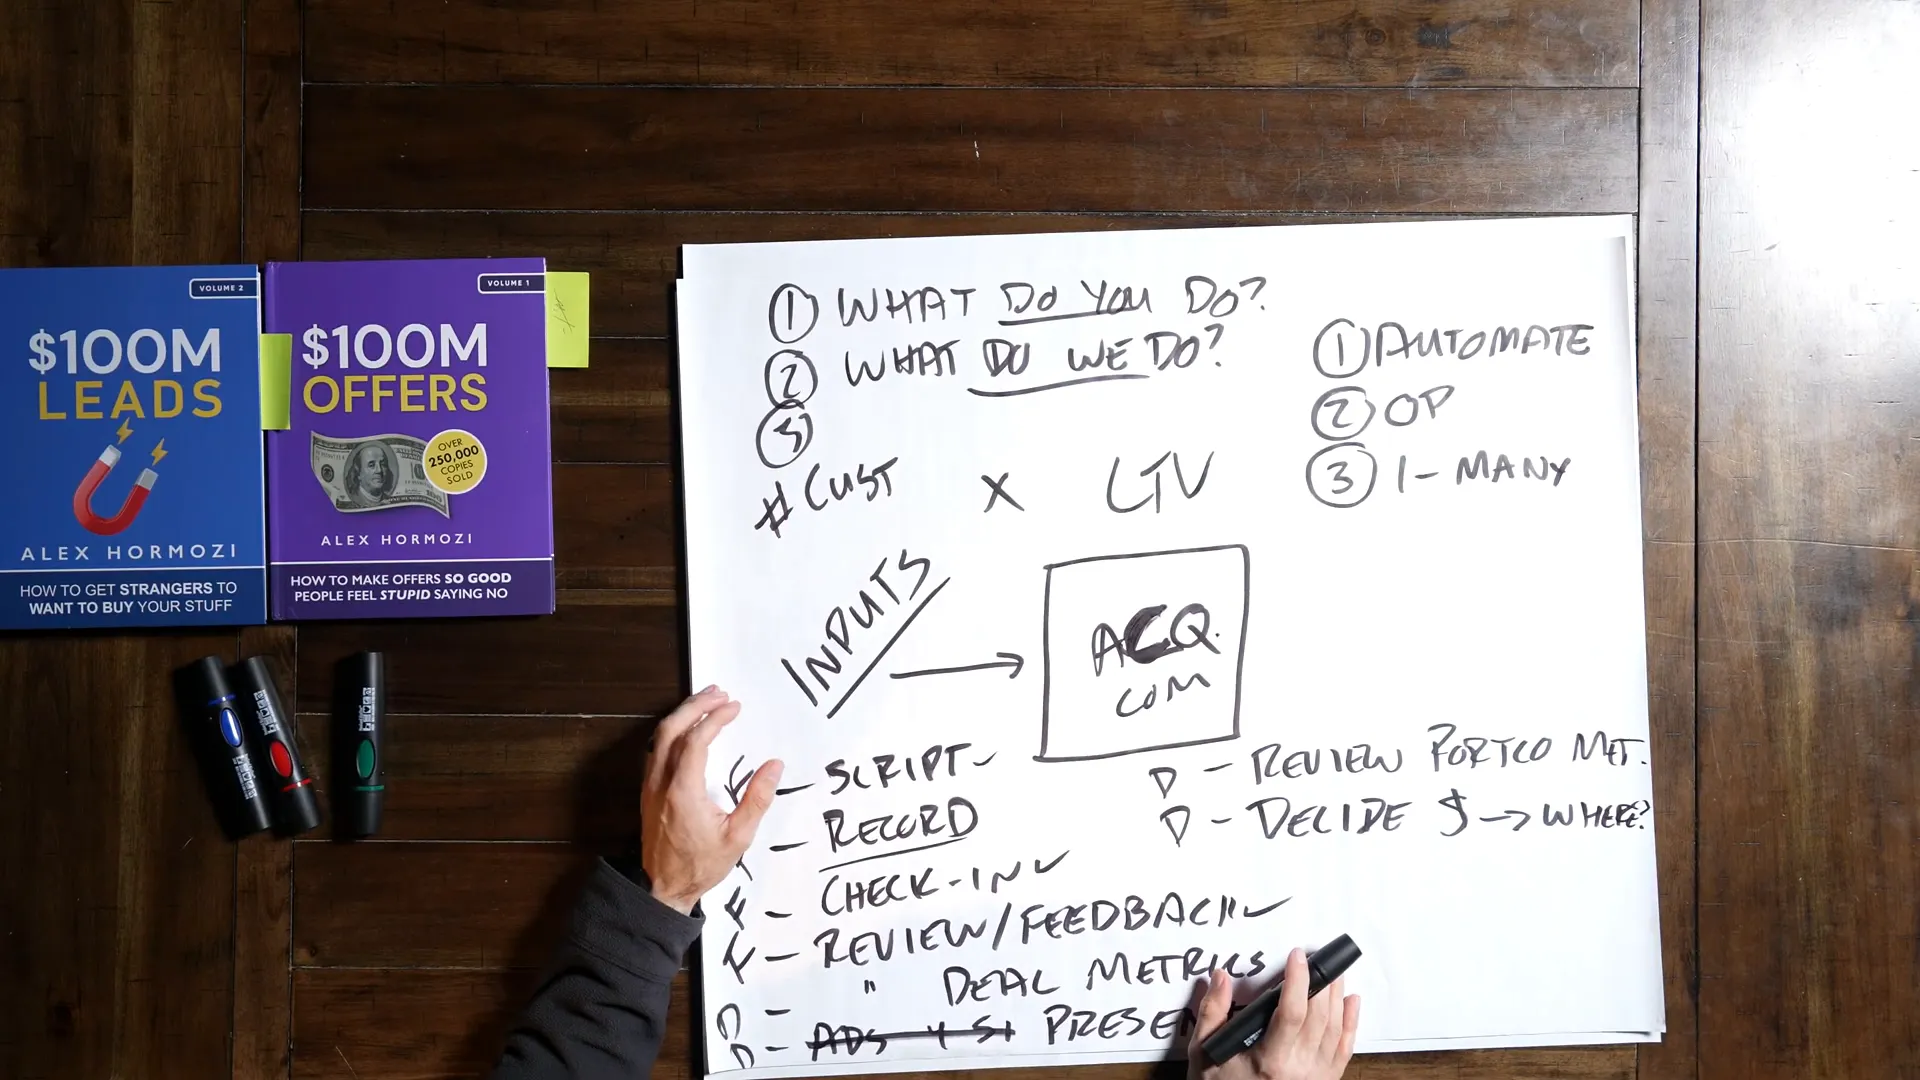 VOLUME 2
$100M
LEADS
ALEX HORMOZI
HOW TO GET STRANGERS TO
WANT TO BUY YOUR STUFF
VOLUME 1
$100M
OFFERS
OVER
250,000
COPIES
SOLD
ALEX HORMOZI
HOW TO MAKE OFFERS SO GOOD
PEOPLE FEEL STUPID SAYING NO
① WHAT DO YOU DO?
② WHAT DO WE DO?
③
#CUST X LTV
① AUTOMATE
② OP
③ 1-MANY
INPUTS → ACQ.
COM
F - SCRIPT
- RECORD
F - CHECK-IN
F - REVIEW/FEEDBACK
D - " DEAL METRICS
D - ADS PRESEN
D - REVIEW PORTCO MET.
D - DECIDE $ → WHERE?